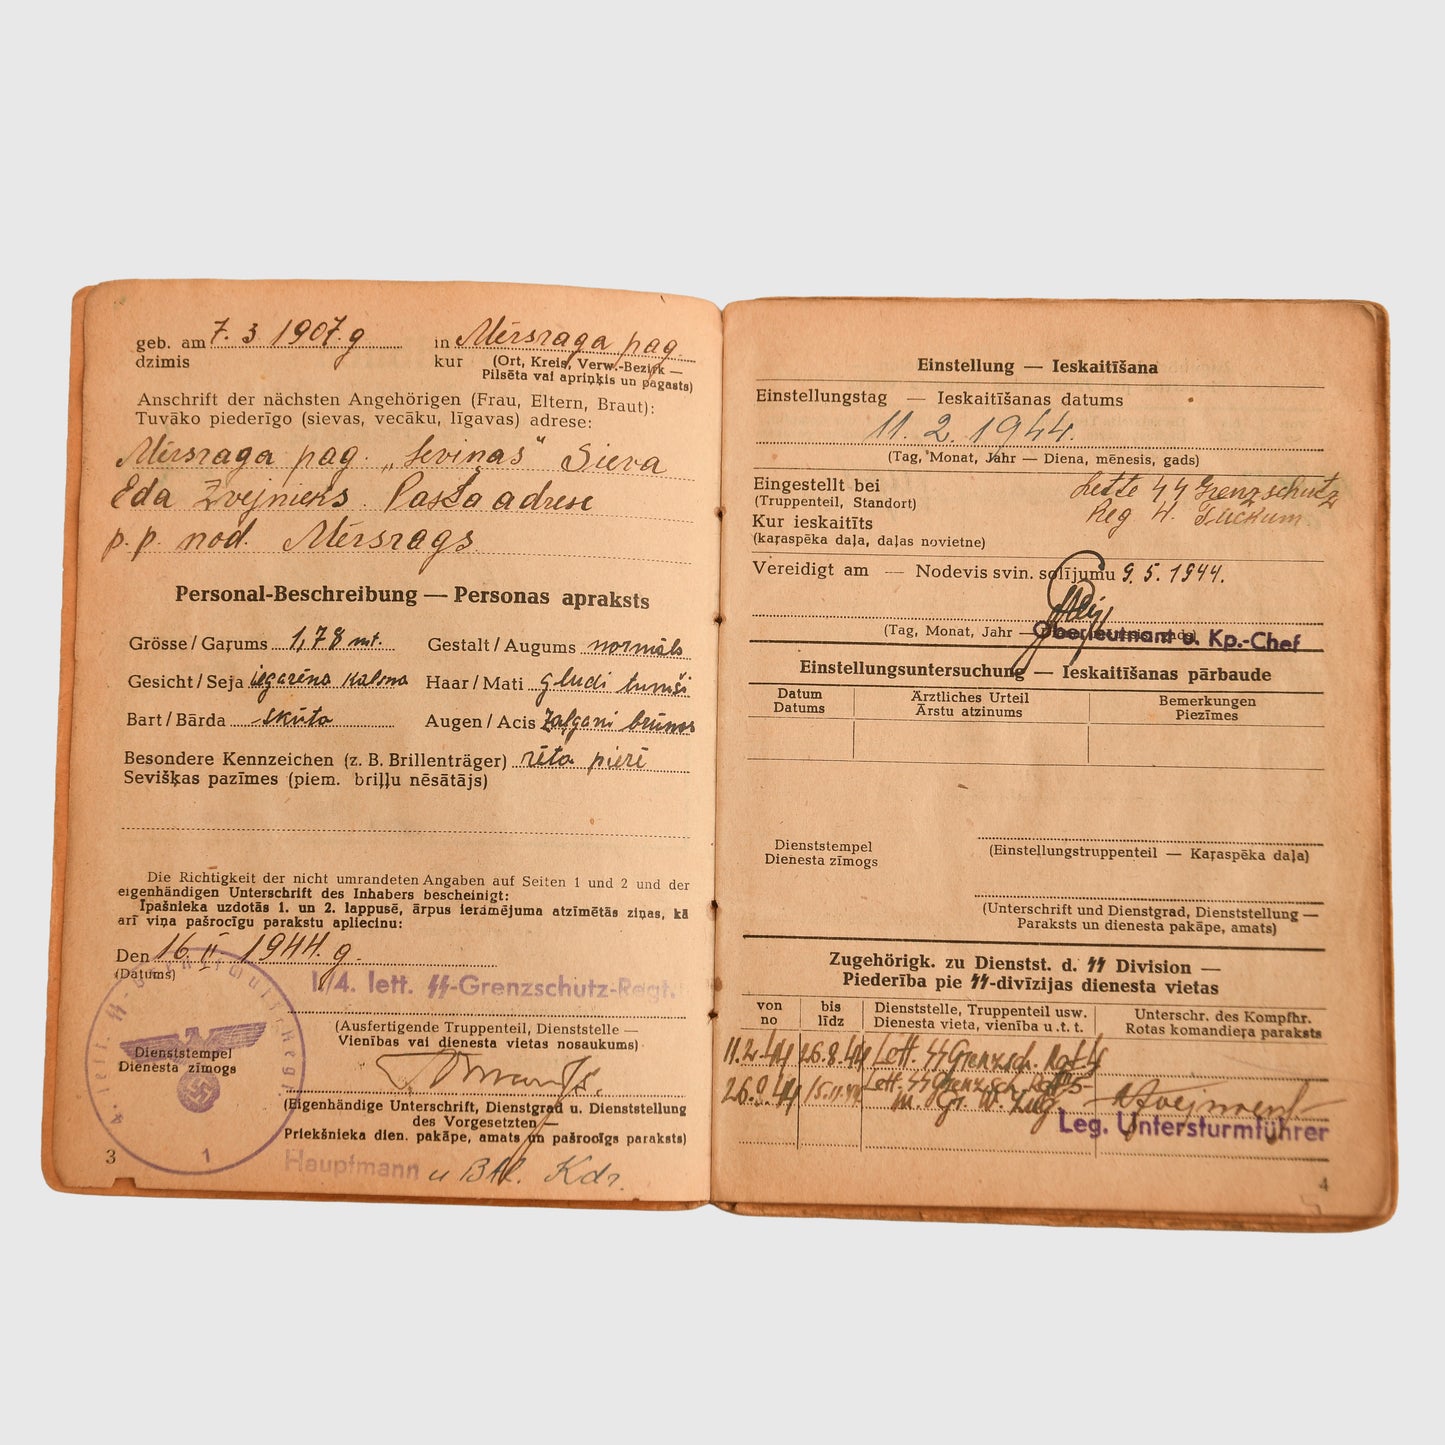 geb. am 7. 3 1907. g in Mērsraga pag.
dzimis kur (Ort, Kreis, Verw.-Bezirk —
Pilsēta vai apriņķis un pagasts)
Anschrift der nächsten Angehörigen (Frau, Eltern, Braut):
Tuvāko piederīgo (sievas, vecāku, līgavas) adrese:
Mērsraga pag. Sieva
Eda Zvejnieks Pasta adrese
p.p. nod. Mērsrags
Personal-Beschreibung — Personas apraksts
Grösse/Gaŗums 1,78 mt. Gestalt/Augums normāls
Gesicht/Seja iegarēna kalsna Haar/Mati gludi tumši
Bart/Bārda skūta Augen/Acis zaļgani brūnas
Besondere Kennzeichen (z. B. Brillenträger) rēta pierē
Sevišķas pazīmes (piem. briļļu nēsātājs)
Die Richtigkeit der nicht umrandeten Angaben auf Seiten 1 und 2 und der
eigenhändigen Unterschrift des Inhabers bescheinigt:
Īpašnieka uzdotās 1. un 2. lappusē, ārpus ierāmējuma atzīmētās ziņas, kā
arī viņa pašrocīgu parakstu apliecinu:
Den 16. II 1944. g.
(Datums)
I/4. lett. ᛋᛋ-Grenzschutz-Regt.
(Ausfertigende Truppenteil, Dienststelle —
Vienības vai dienesta vietas nosaukums)
Dienststempel
Dienesta zīmogs
(Eigenhändige Unterschrift, Dienstgrad u. Dienststellung
des Vorgesetzten —
Priekšnieka dien. pakāpe, amats un pašrocīgs paraksts)
Hauptmann u Btl. Kdr.
4. lett. ᛋᛋ-Grenzschutz Regt.
1
3
Einstellung — Ieskaitīšana
Einstellungstag — Ieskaitīšanas datums
11. 2. 1944.
(Tag, Monat, Jahr — Diena, mēnesis, gads)
Eingestellt bei Lette ᛋᛋ Grenzschutz
(Truppenteil, Standort) Reg 4. Tuckum
Kur ieskaitīts
(kaŗaspēka daļa, daļas novietne)
Vereidigt am — Nodevis svin. solījumu 9. 5. 1944.
(Tag, Monat, Jahr —
Oberleutnant u. Kp.-Chef
Einstellungsuntersuchung — Ieskaitīšanas pārbaude
Datum Ärztliches Urteil Bemerkungen
Datums Ārstu atzinums Piezīmes
Dienststempel
Dienesta zīmogs
(Einstellungstruppenteil — Kaŗaspēka daļa)
(Unterschrift und Dienstgrad, Dienststellung —
Paraksts un dienesta pakāpe, amats)
Zugehörigk. zu Dienstst. d. ᛋᛋ Division —
Piederība pie ᛋᛋ-divīzijas dienesta vietas
von bis Dienststelle, Truppenteil usw. Unterschr. des Kompfhr.
no līdz Dienesta vieta, vienība u .t. t. Rotas komandieŗa paraksts
11.2.44 26.8.44 Lett. ᛋᛋ Grenzsch. Rgt 4
26.8.44 15.11.44 Lett. ᛋᛋ Grenzsch. Rgt
m. Gr. W. Zug
Leg. Untersturmführer
4